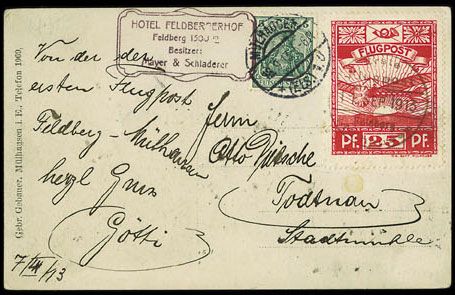 HOTEL FELDBERGERHOF
Feldberg 1500 m
Besitzer:
Mayer & Schladerer
MÜLHAUSEN
FLUGPOST
PF. 25 PF.
Von der
ersten Flugpost
Feldberg-Mülhausen
herzl Gruss
Götti
7/III/13
Herrn
Otto
Todtnau
Stadtmühle
Gebr. Gebauer, Mülhausen i. E., Telefon 1969.